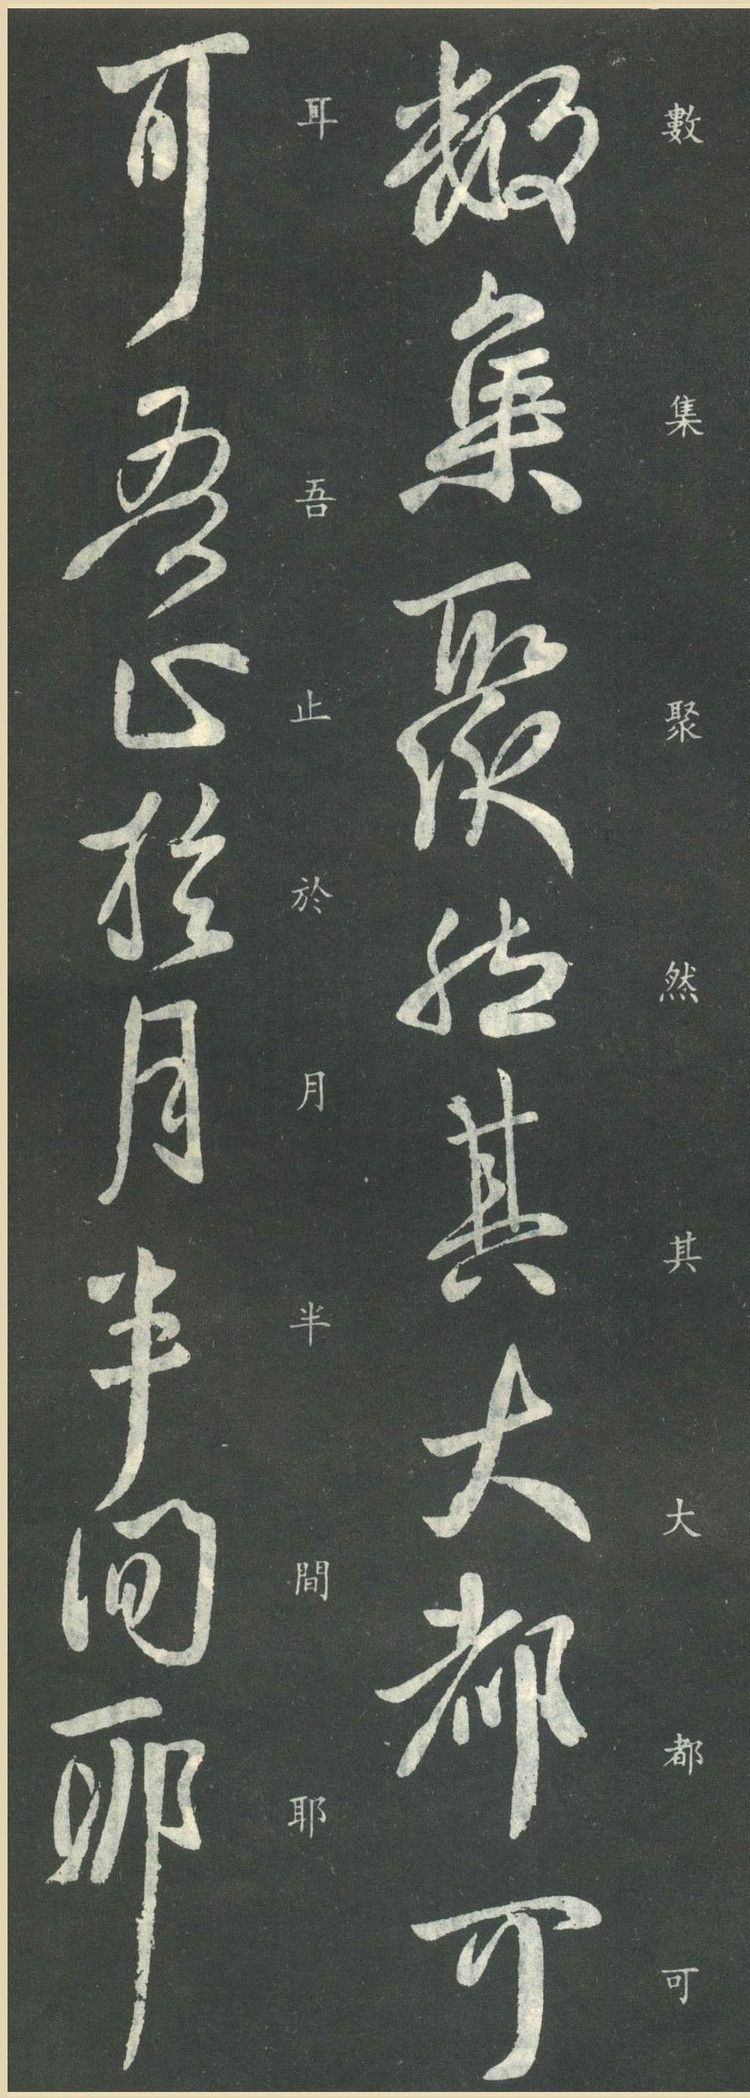 數集聚然其大都可
數集聚然其大都可
耳吾止於月半間耶
耳吾止於月半間耶